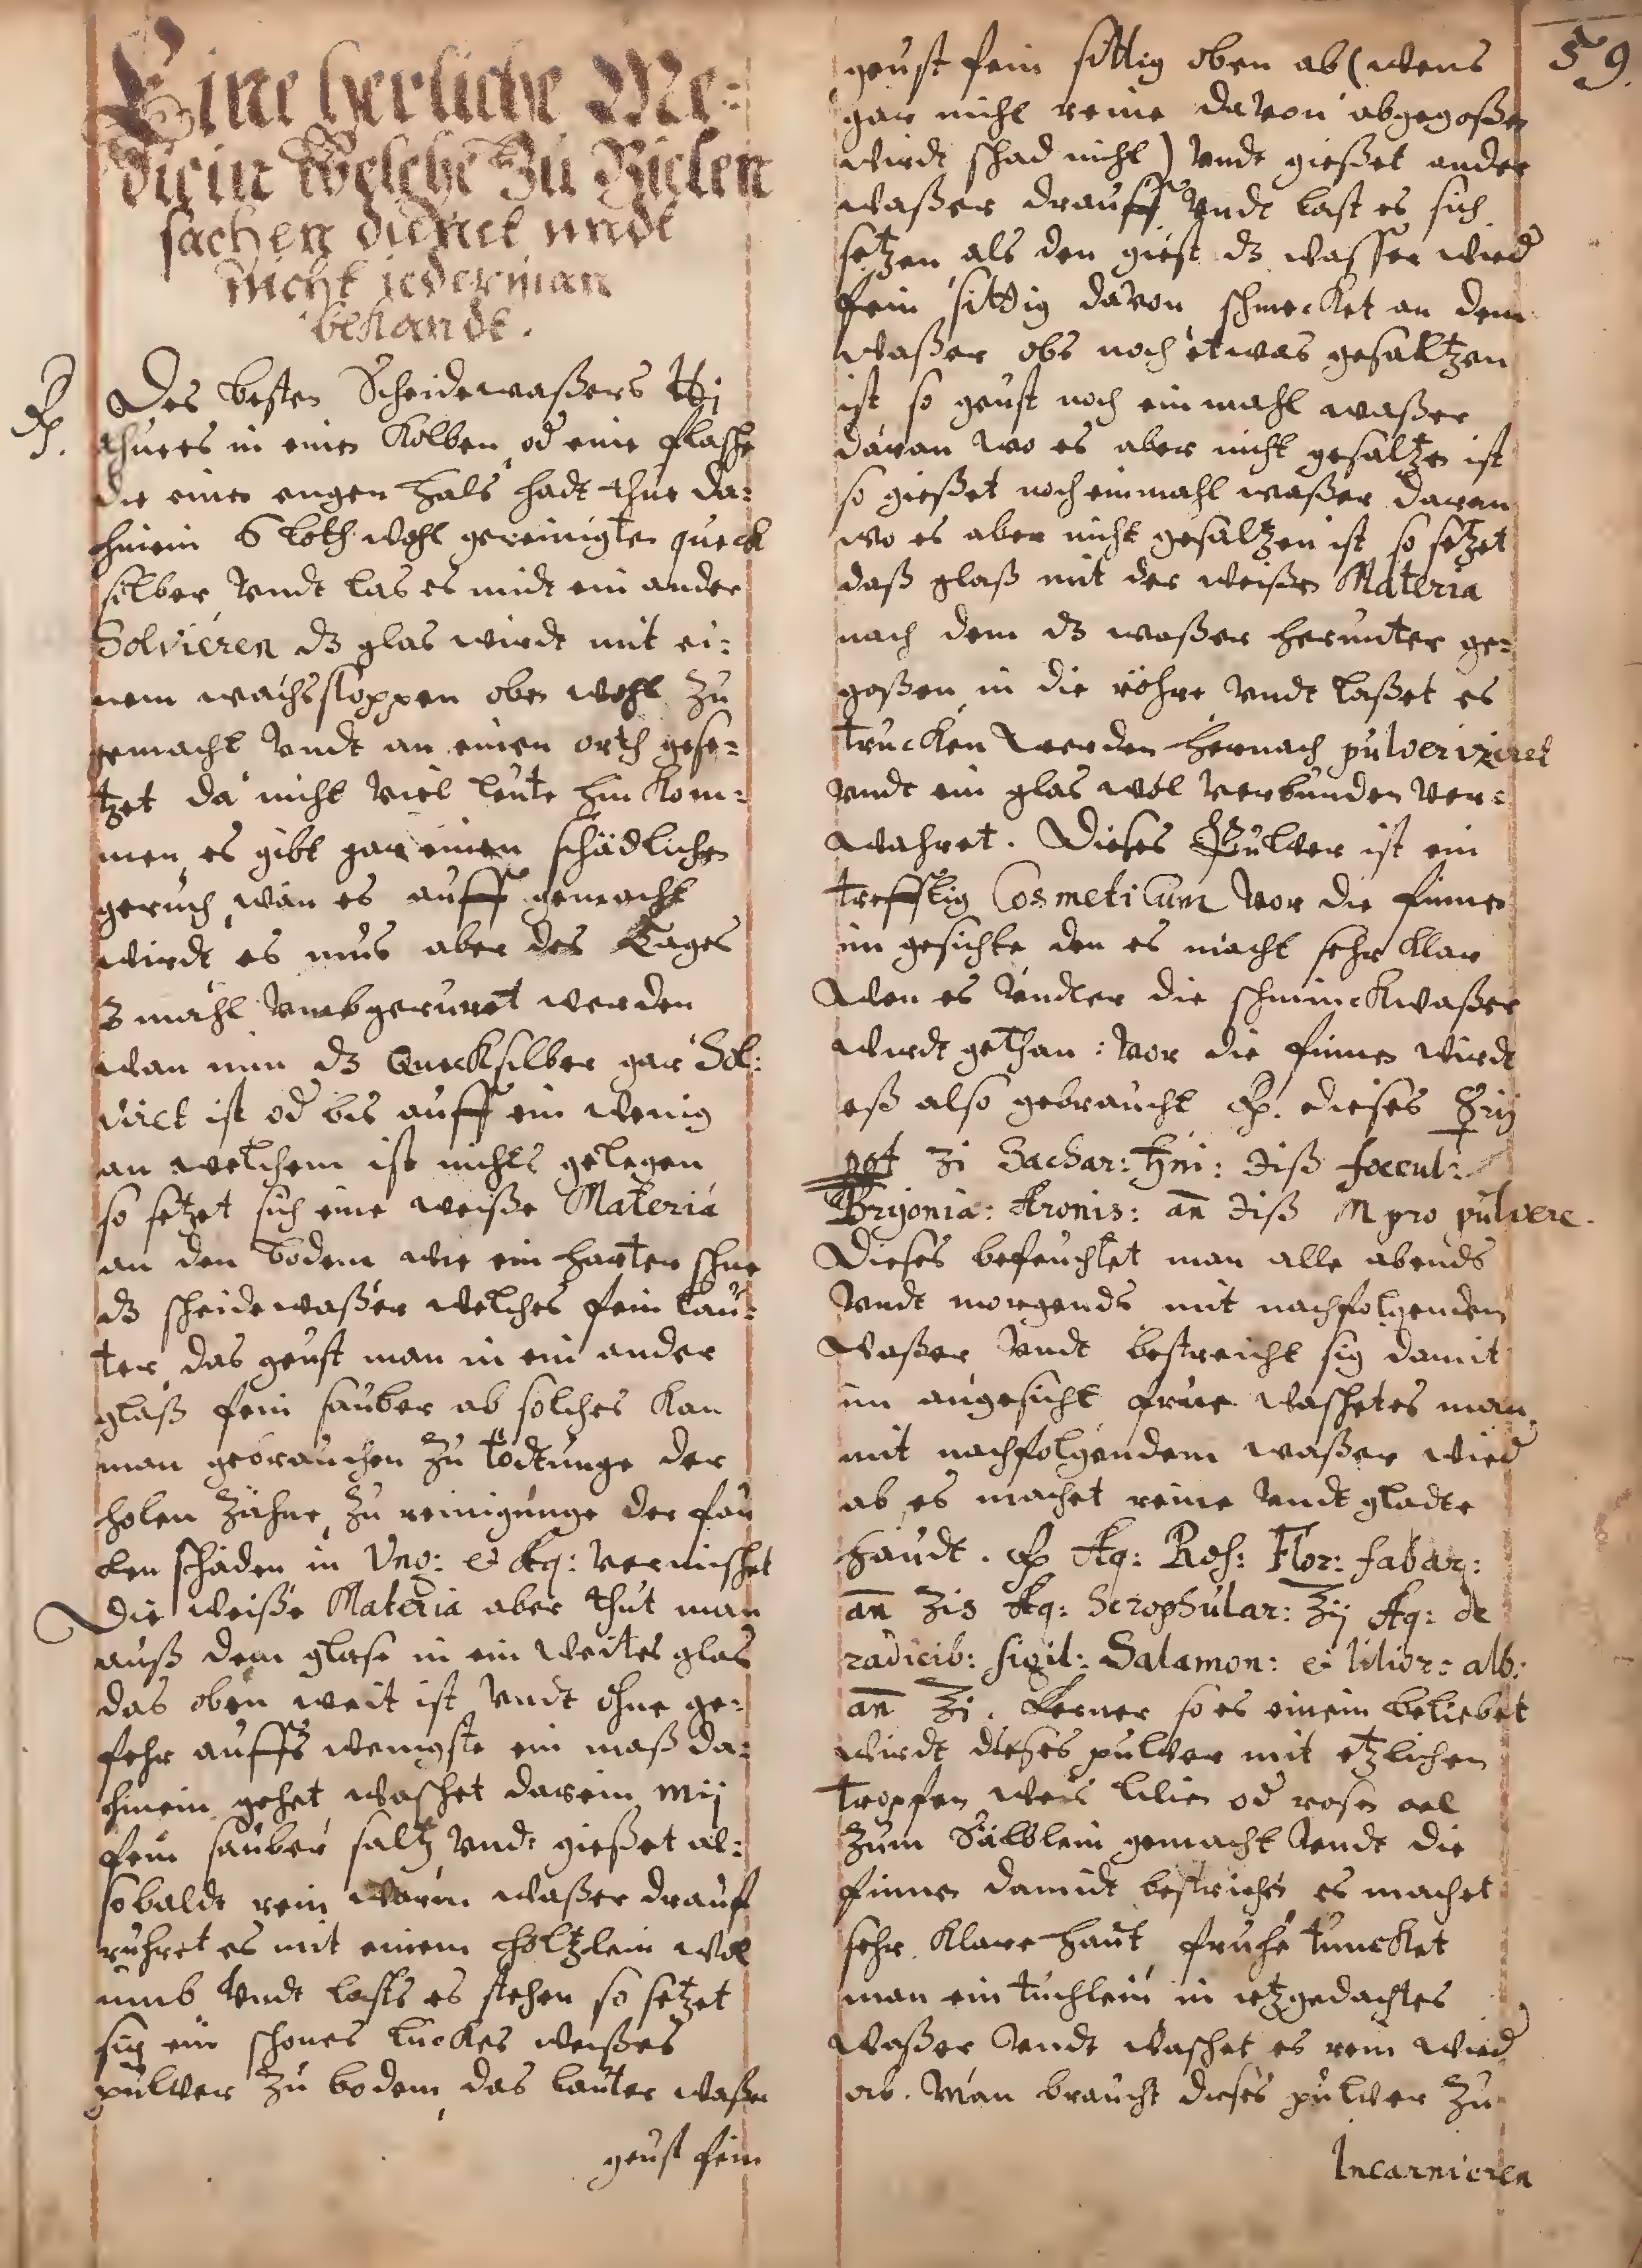 59.
Eine herliche Me-
dicin Welche Zu Vielen
sachen dienet undt
nicht jederman
bekandt.
Rp. Des besten Scheidewaßers ℔j
thue es in einen Kolben od eine flasche
die einen engen hals hadt thue da-
hinein 6 loth wohl gereinigten queck
silber Vndt las es midt ein ander
Solvieren dz glas wirdt mit ei-
nem wachsstoppen oben wohl zu
gemacht Vndt an einen orth gese-
tzet da nicht Viel leute hin kom-
men, es gibt gar einen schädlichen
geruch, wan es auff gemacht
wirdt es mus aber des Tages
3 mahl Vmbgeruret werden
wan nun dz Quecksilber gar Sol-
viret ist od bis auff ein wenig
an welchem ist nichts gelegen
so setzet sich eine weiße Materia
an den bodem wie ein harter schne
dz scheidewaßer welches fein lau-
ter das geust man in ein ander
glaß fein sauber ab solches kan
man gebrauchen zu tödtunge der
holen zähne, zu reinigunge der fau
len schäden in Vng: & Aq: vermischet
Die weiße Materia aber thut man
auß dem glase in ein weites glas
das oben weit ist Vndt ohne ge-
fehr auffs wenigste ein maß da-
hinein gehet waschet darein Mij
fein sauber saltz Vndt gießet al-
sobaldt rein warm waßer drauf
ruhret es mit einem holtzlein wol
umb Vndt lasts es stehen so setzet
sig ein schones luckes weißes
pulver zu bodem das lauter waßer
geust fein
geust fein sittig oben ab (wens
gar nicht reine davon abgegoßen
wirdt schad nicht) Vndt gießet ander
waßer drauff Vndt last es sich
setzen als den giest dz wasser wied
fein sittig davon schmecket an dem
waßer obs noch etwas gesaltzen
ist so geust noch ein mahl waßer
daran wo es aber nicht gesaltzen ist
so gießet noch einmahl waßer daran
wo es aber nicht gesaltzen ist so setzet
daß glaß mit der weißen Materia
nach dem dz waßer herunter ge-
goßen in die röhre Vndt laßet es
trucken werden hernach pulverizeret
Vndt ein glas wol verbunden ver-
wahret. Dieses Pulver ist ein
trefflig Cosmeticum vor die finnen
im gesichte den es macht sehr klar
Wen es Vndter die schminckwaßer
wirdt gethan: vor die finnen wirdt
eß also gebraucht Rp. dieses ☿ij
ppt ʒi Sachar: ♄ni: ʒiß foecul:
Bryonia: Aronis: an̄ ʒiß M pro pulvere.
Dieses befeuchtet man alle abends
Vndt morgends mit nachfolgenden
Waßer Vndt bestreicht sig damit
im angesicht, frue waschetes man
mit nachfolgendem waßer wied
ab, es machet reine Vndt gladte
haudt. Rp Aq: Ros: Flor: fabar:
an̄ ℥is Aq: Scrophular: ℥ij Aq: de
radicib: sigil: Salamon: & lilior: alb:
an̄ ℥i. Ferner so es einem beliebet
wirdt dieses pulver mit etzlichen
tropfen weis lilien od rosen oel
zum Sälblein gemacht Vndt die
finnen damidt bestrichen es machet
sehr klare haut, fruhe tuncket
man ein tuchlein in itzgedachtes
waßer Vndt waschet es rein wied
ab. Man braucht dieses pulver zu
Incarnieren